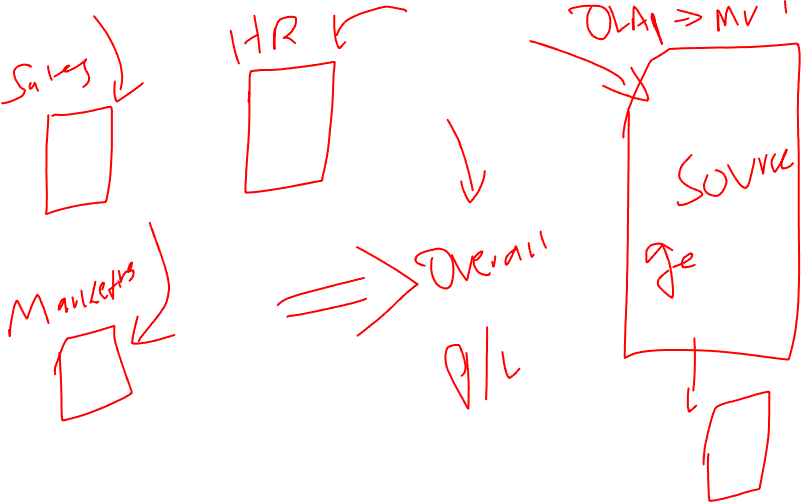 Sales
HR
OLAP ⇒ MV
Source
ge
Overall
P/L